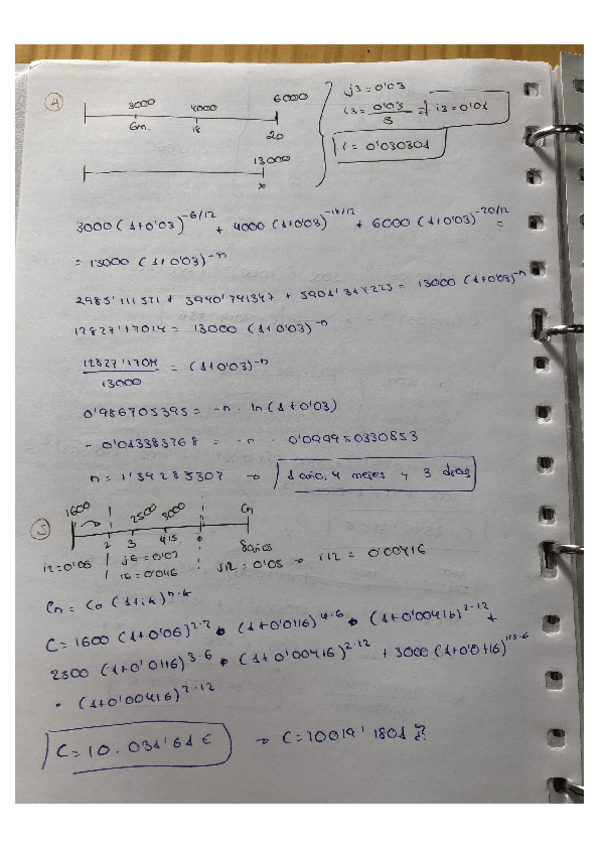 4
3000 4000 6000
6m. 18 20
13000
x
j3 = 0'03
i3 = 0'03/3 = i3 = 0'01
i = 0'030301
3000 (1+0'03)^-6/12 + 4000 (1+0'03)^-18/12 + 6000 (1+0'03)^-20/12 =
= 13000 (1+0'03)^-n
12827'17014 = 13000 (1+0'03)^-n
/13000 = (1+0'03)^-n
0'986705395 = -n · ln (1+0'03)
- 0'013383768 = -n ·
n = 1'34285307 → 1 año, 4 meses y 3 días
5
1600 2500 3000 Cn
2 3 4,5 6 8 años
i2 = 0'06 j6 = 0'07 j12 = 0'05 → i12 = 0'00416
Cn = Co (1+ik)^n·k
C = 1600 (1+0'06)^2·2 • (1+0'0116)^4·6 • (1+0'00416)^2·12 +
2500 (1+0'0116)^3·6 • (1+0'00416)^2·12 + 3000 (1+0'0116)
• (1+0'00416)^2·12
C = 10.031'61 € → C = 10019'1801 ?